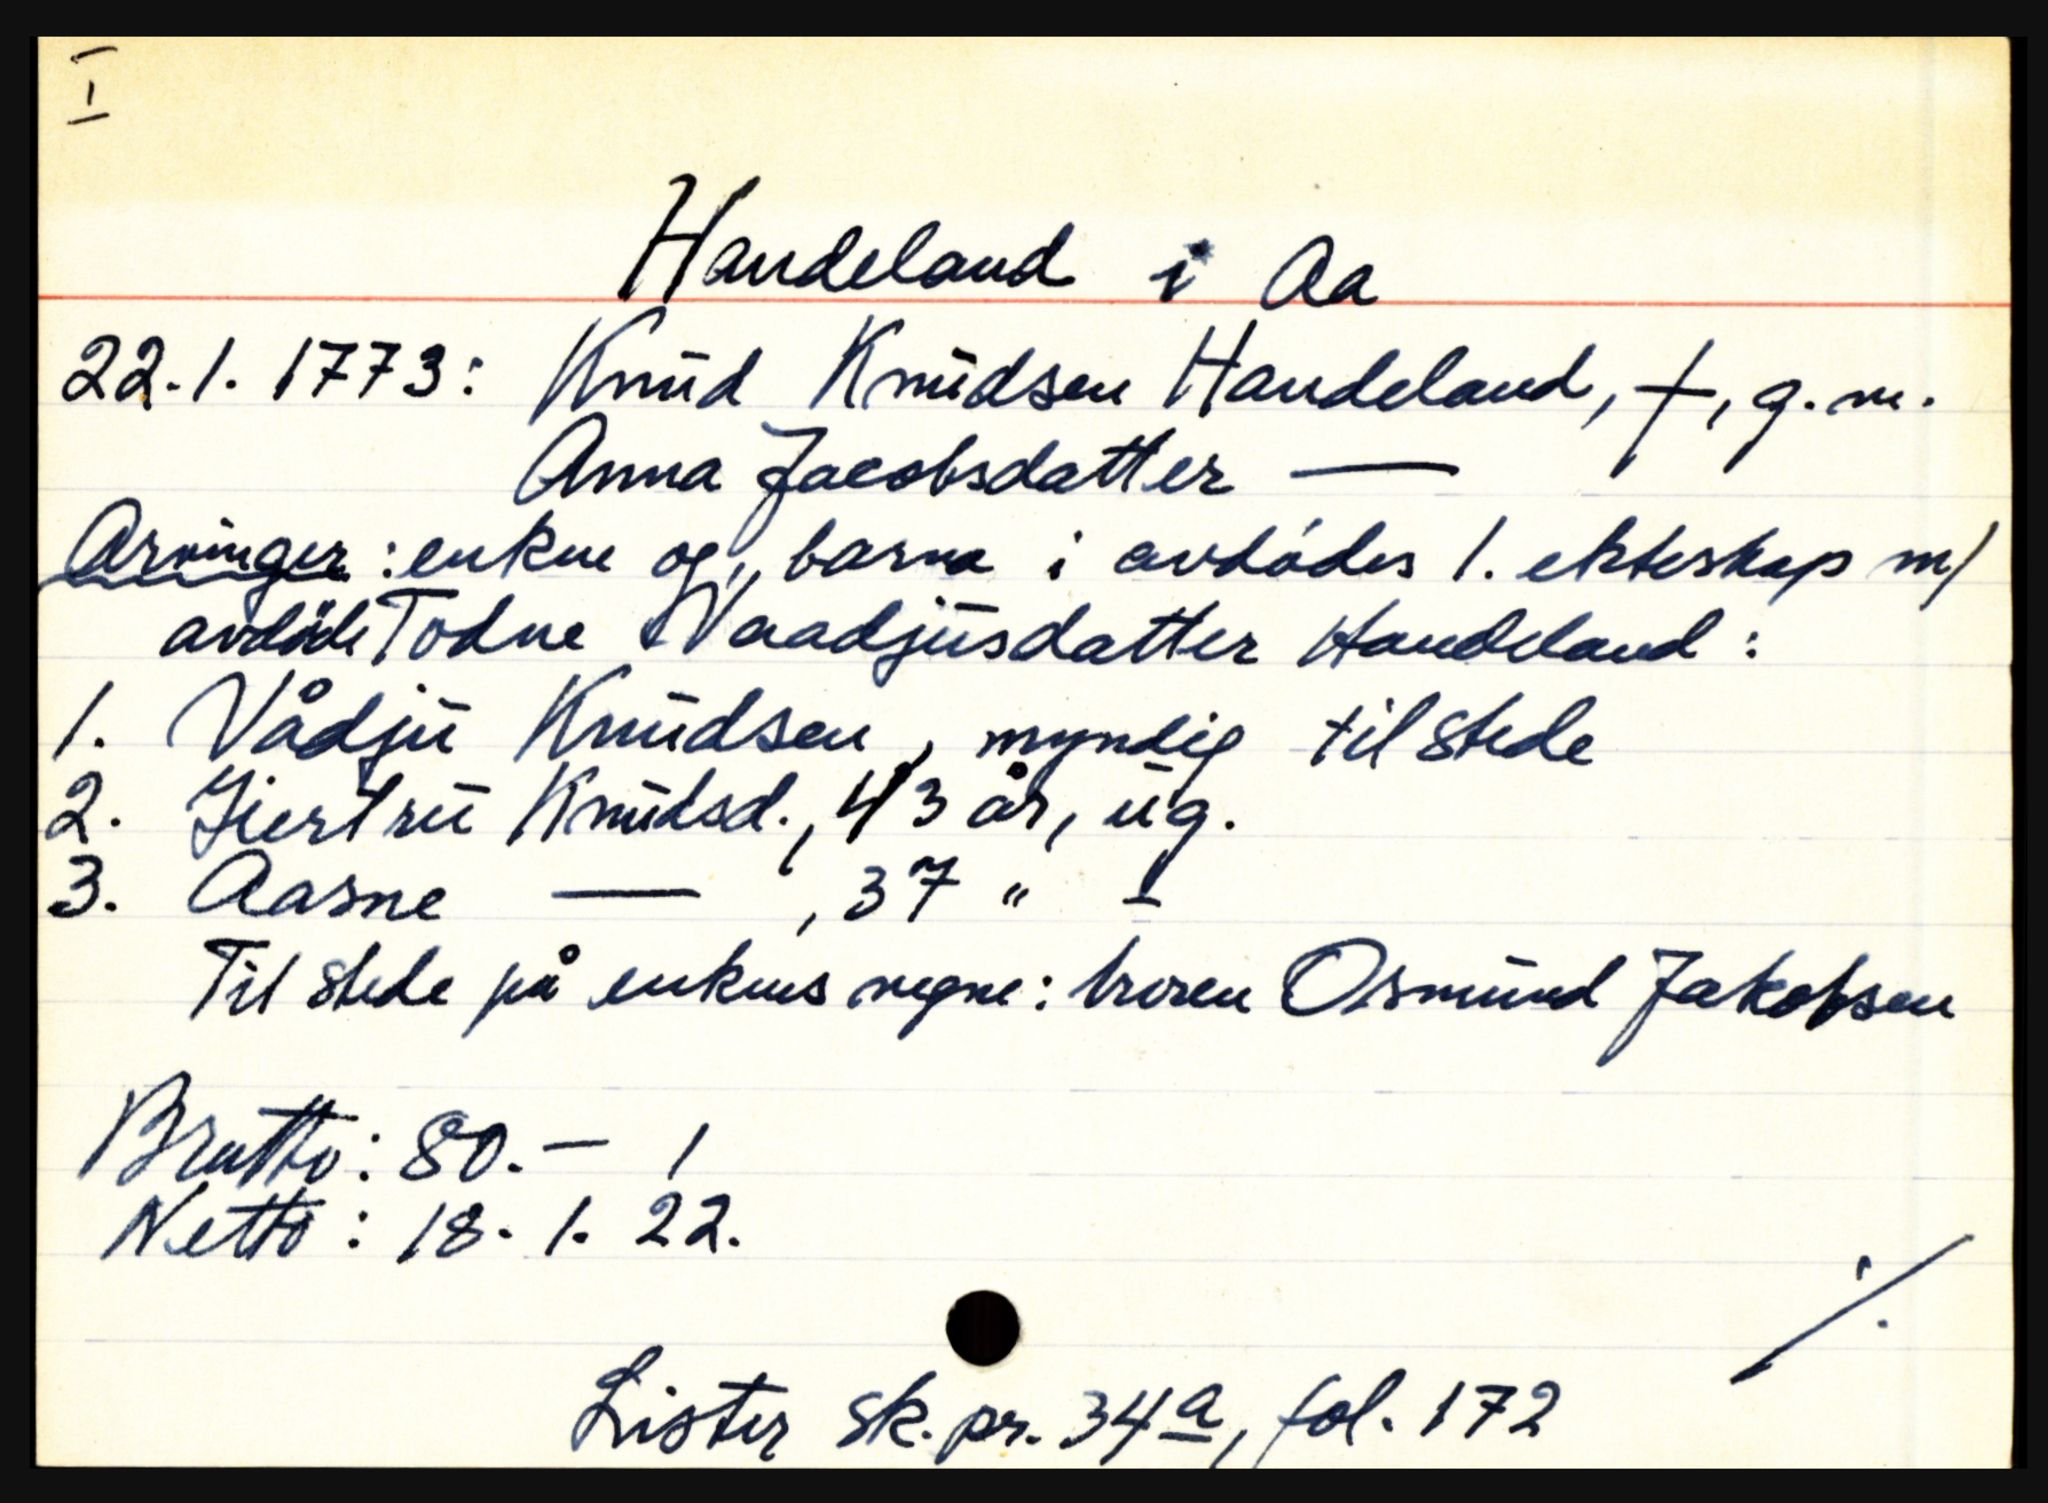 I
Handeland i Aa
22.1.1773: Knud Knudsen Handeland, †, g.m.
Anna Jacobsdatter —
Arvinger: enken og barna i avdødes 1. ekteskap m/
avdøde Todne Vaadjusdatter Handeland:
1. Vådju Knudsen, myndig til stede
2. Giertru Knudsd., 43 år, ug.
3. Aasne — , 37 " I
Til stede på enkens vegne: broren Osmund Jakobsen
Brutto: 80.– /
Netto: 18. 1. 22.
./.
Lister sk.pr. 34a, fol. 172